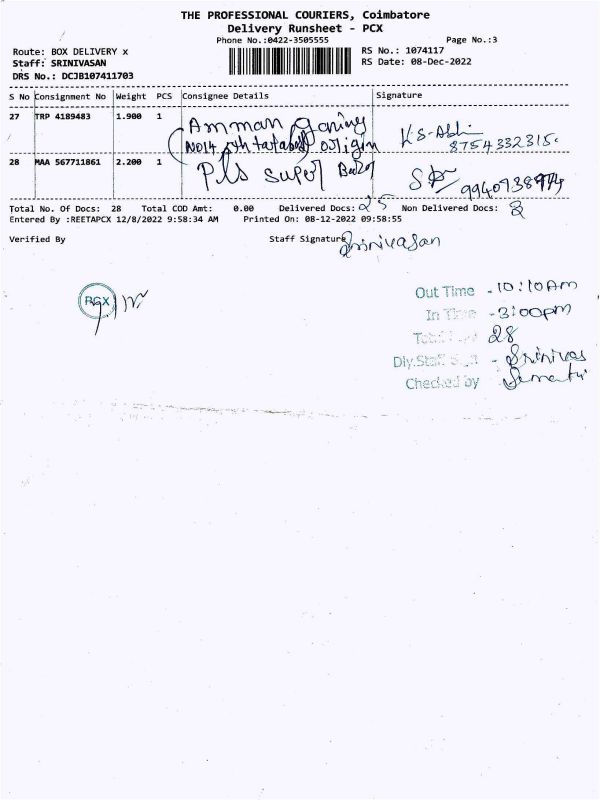 THE PROFESSIONAL COURIERS, Coimbatore
Delivery Runsheet - PCX
Phone No.:0422-3505555
Page No.:3
Route: BOX DELIVERY x
RS No.: 1074117
Staff: SRINIVASAN
RS Date: 08-Dec-2022
DRS No.: DCJB107411703
S No Consignment No Weight PCS Consignee Details Signature
27 TRP 4189483 1.900 1 Amman
No14
8754332315.
28 MAA 567711861 2.200 1 Pls super
Total No. Of Docs: 28 Total COD Amt: 0.00 Delivered Docs: 25 Non Delivered Docs:
Entered By :REETAPCX 12/8/2022 9:58:34 AM Printed On: 08-12-2022 09:58:55
Verified By Staff Signature Srinivasan
PCX
Out Time - 10:10Am
In Time - 3:00pm
28
Dly.Staff - Srinivas
Checked by